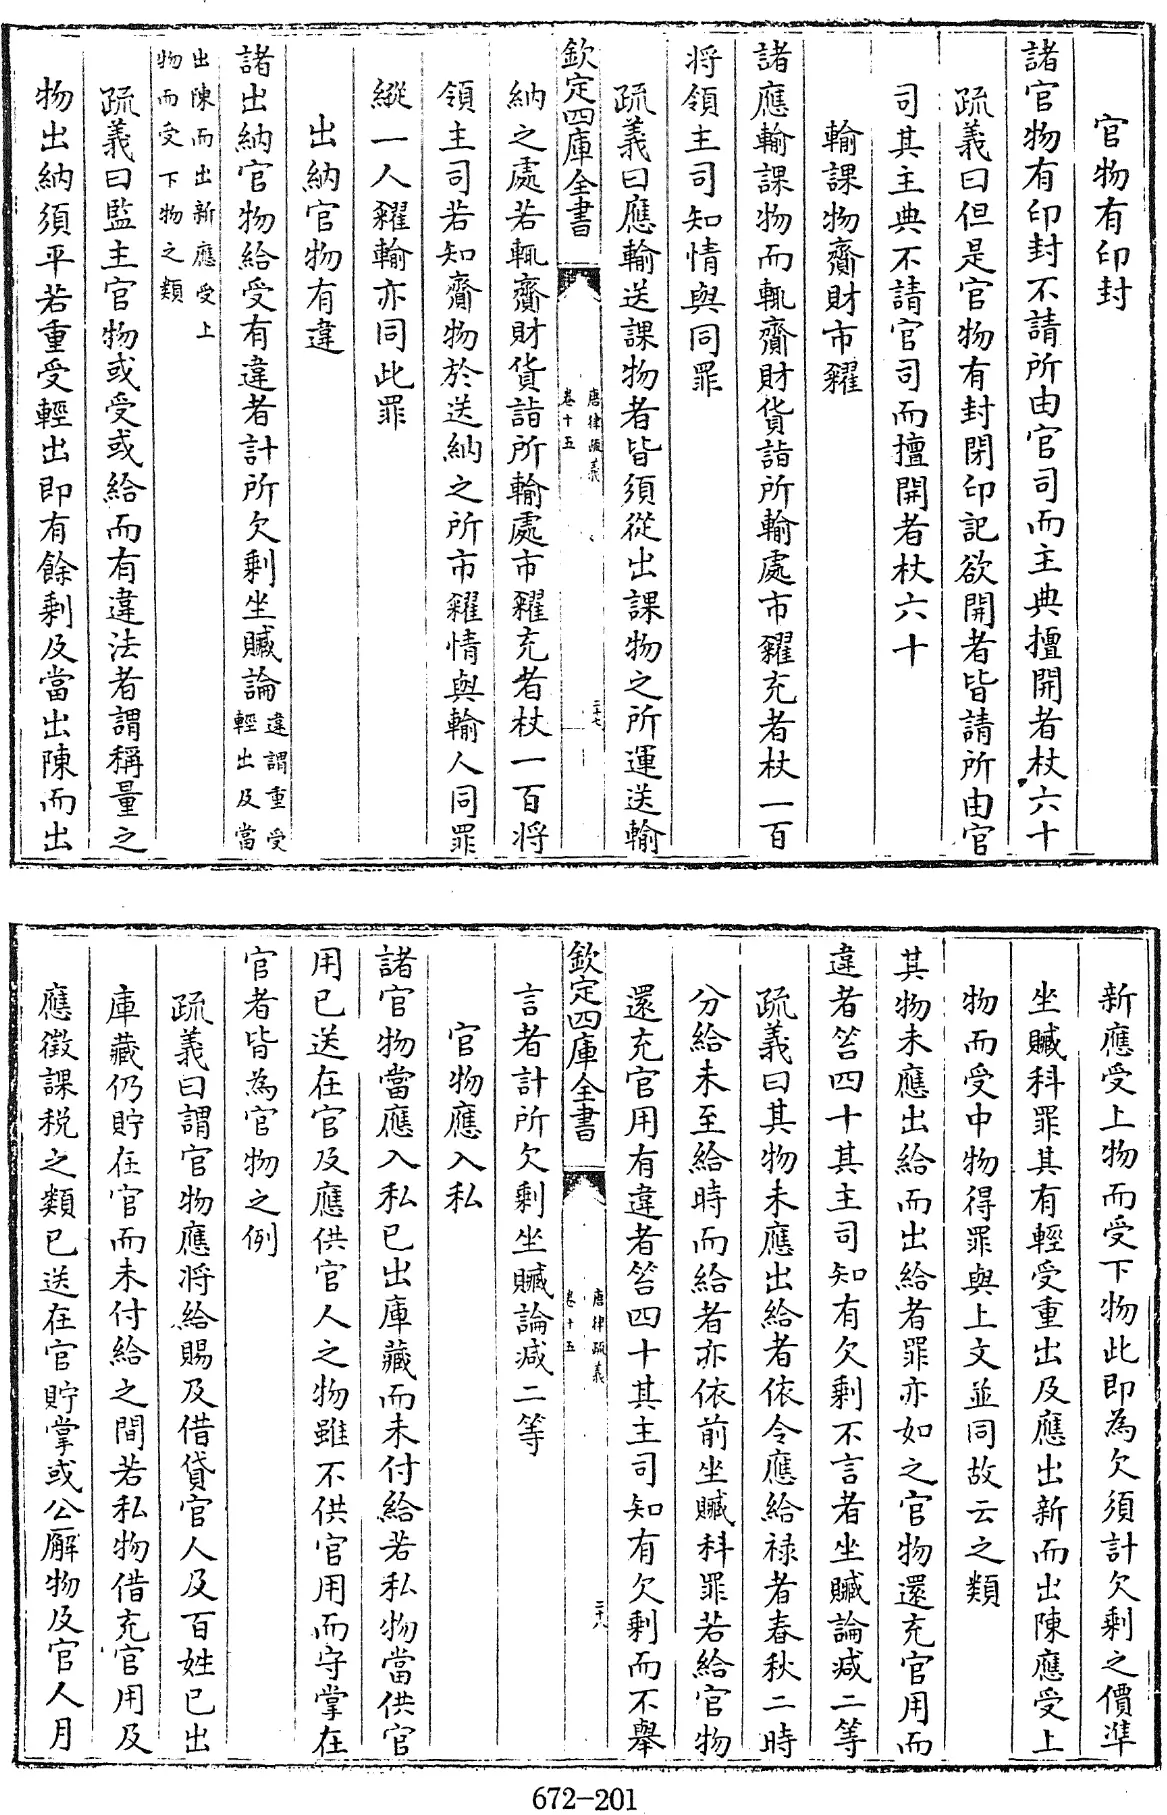 官物有印封
諸官物有印封不請所由官司而主典擅開者杖六十
疏義曰但是官物有封閉印記欲開者皆請所由官
司其主典不請官司而擅開者杖六十
輸課物齎財市糴
諸應輸課物而輒齎財貨詣所輸處市糴充者杖一百
将領主司知情與同罪
疏義曰應輸送課物者皆須從出課物之所運送輸
欽定四庫全書
唐律疏義
卷十五
二十七
納之處若輒齎財貨詣所輸處市糴充者杖一百将
領主司若知齎物於送納之所市糴情與輸人同罪
縱一人糴輸亦同此罪
出納官物有違
諸出納官物給受有違者計所欠剩坐贓論違謂重受
輕出及當
出陳而出新應受上
物而受下物之類
疏義曰監主官物或受或給而有違法者謂稱量之
物出納須平若重受輕出即有餘剩及當出陳而出
新應受上物而受下物此即為欠須計欠剩之價準
坐贓科罪其有輕受重出及應出新而出陳應受上
物而受中物得罪與上文並同故云之類
其物未應出給而出給者罪亦如之官物還充官用而
違者笞四十其主司知有欠剩不言者坐贓論減二等
疏義曰其物未應出給者依令應給禄者春秋二時
分給未至給時而給者亦依前坐贓科罪若給官物
還充官用有違者笞四十其主司知有欠剩而不舉
欽定四庫全書
唐律疏義
卷十五
二十八
言者計所欠剩坐贓論減二等
官物應入私
諸官物當應入私已出庫藏而未付給若私物當供官
用已送在官及應供官人之物雖不供官用而守掌在
官者皆為官物之例
疏義曰謂官物應将給賜及借貸官人及百姓已出
庫藏仍貯在官而未付給之間若私物借充官用及
應徵課稅之類已送在官貯掌或公廨物及官人月
672-201